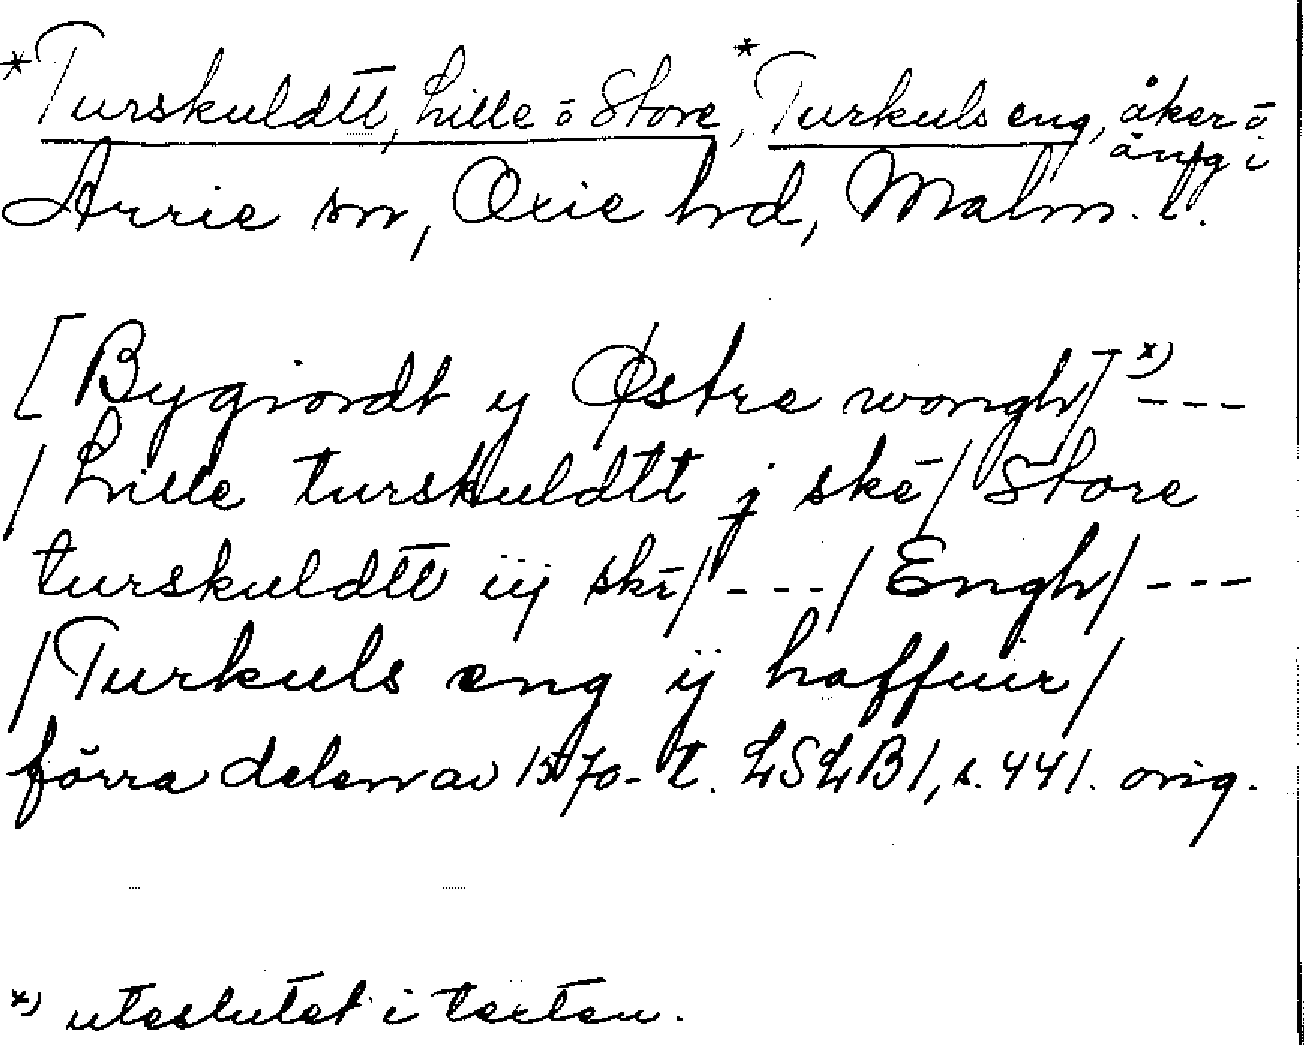 *Turskuldtt, Lille o Store, *Turkuls eng, åker o.
äng i
Arrie sn, Oxie hd, Malm. l.
[Bygiordt y Østre wongh] x) ---
/ Lille turskuldtt j ske / Store
turskuldtt iij ske / --- / Engh / ---
/ Turkuls eng ij haffuir /
förra delen av 1570-t. LSLB 1, s. 441. orig.
x) uteslutet i texten.